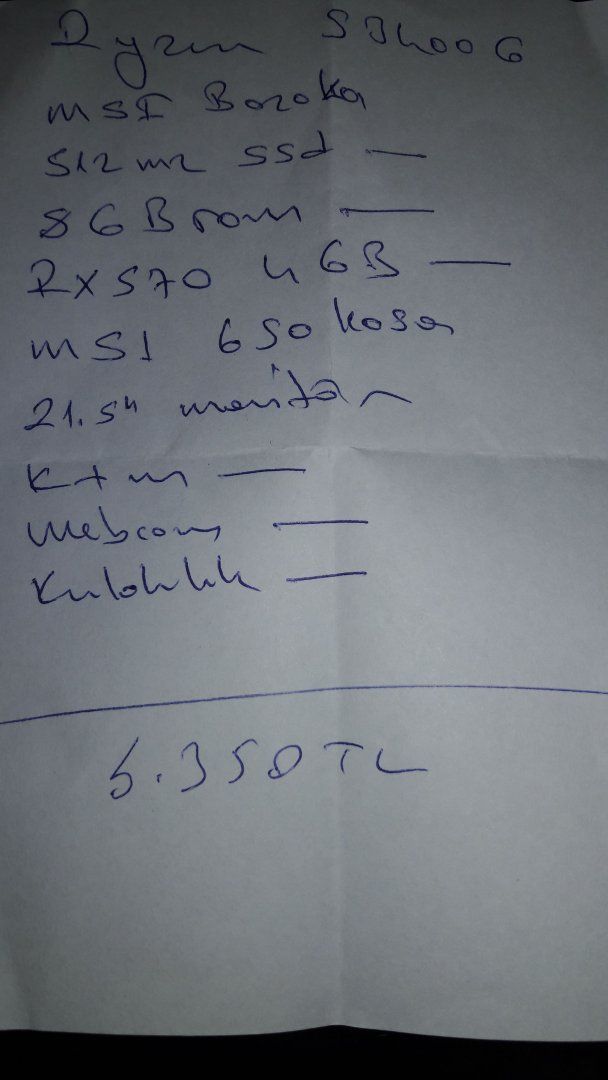 Ryzen 5 3400G
MSI Bazoka
512 m2 ssd —
8 GB ram —
RX570 4 GB —
MSI 650 kasa
21.5" monitör
K + m —
Webcam —
Kulaklık —
5.350 TL